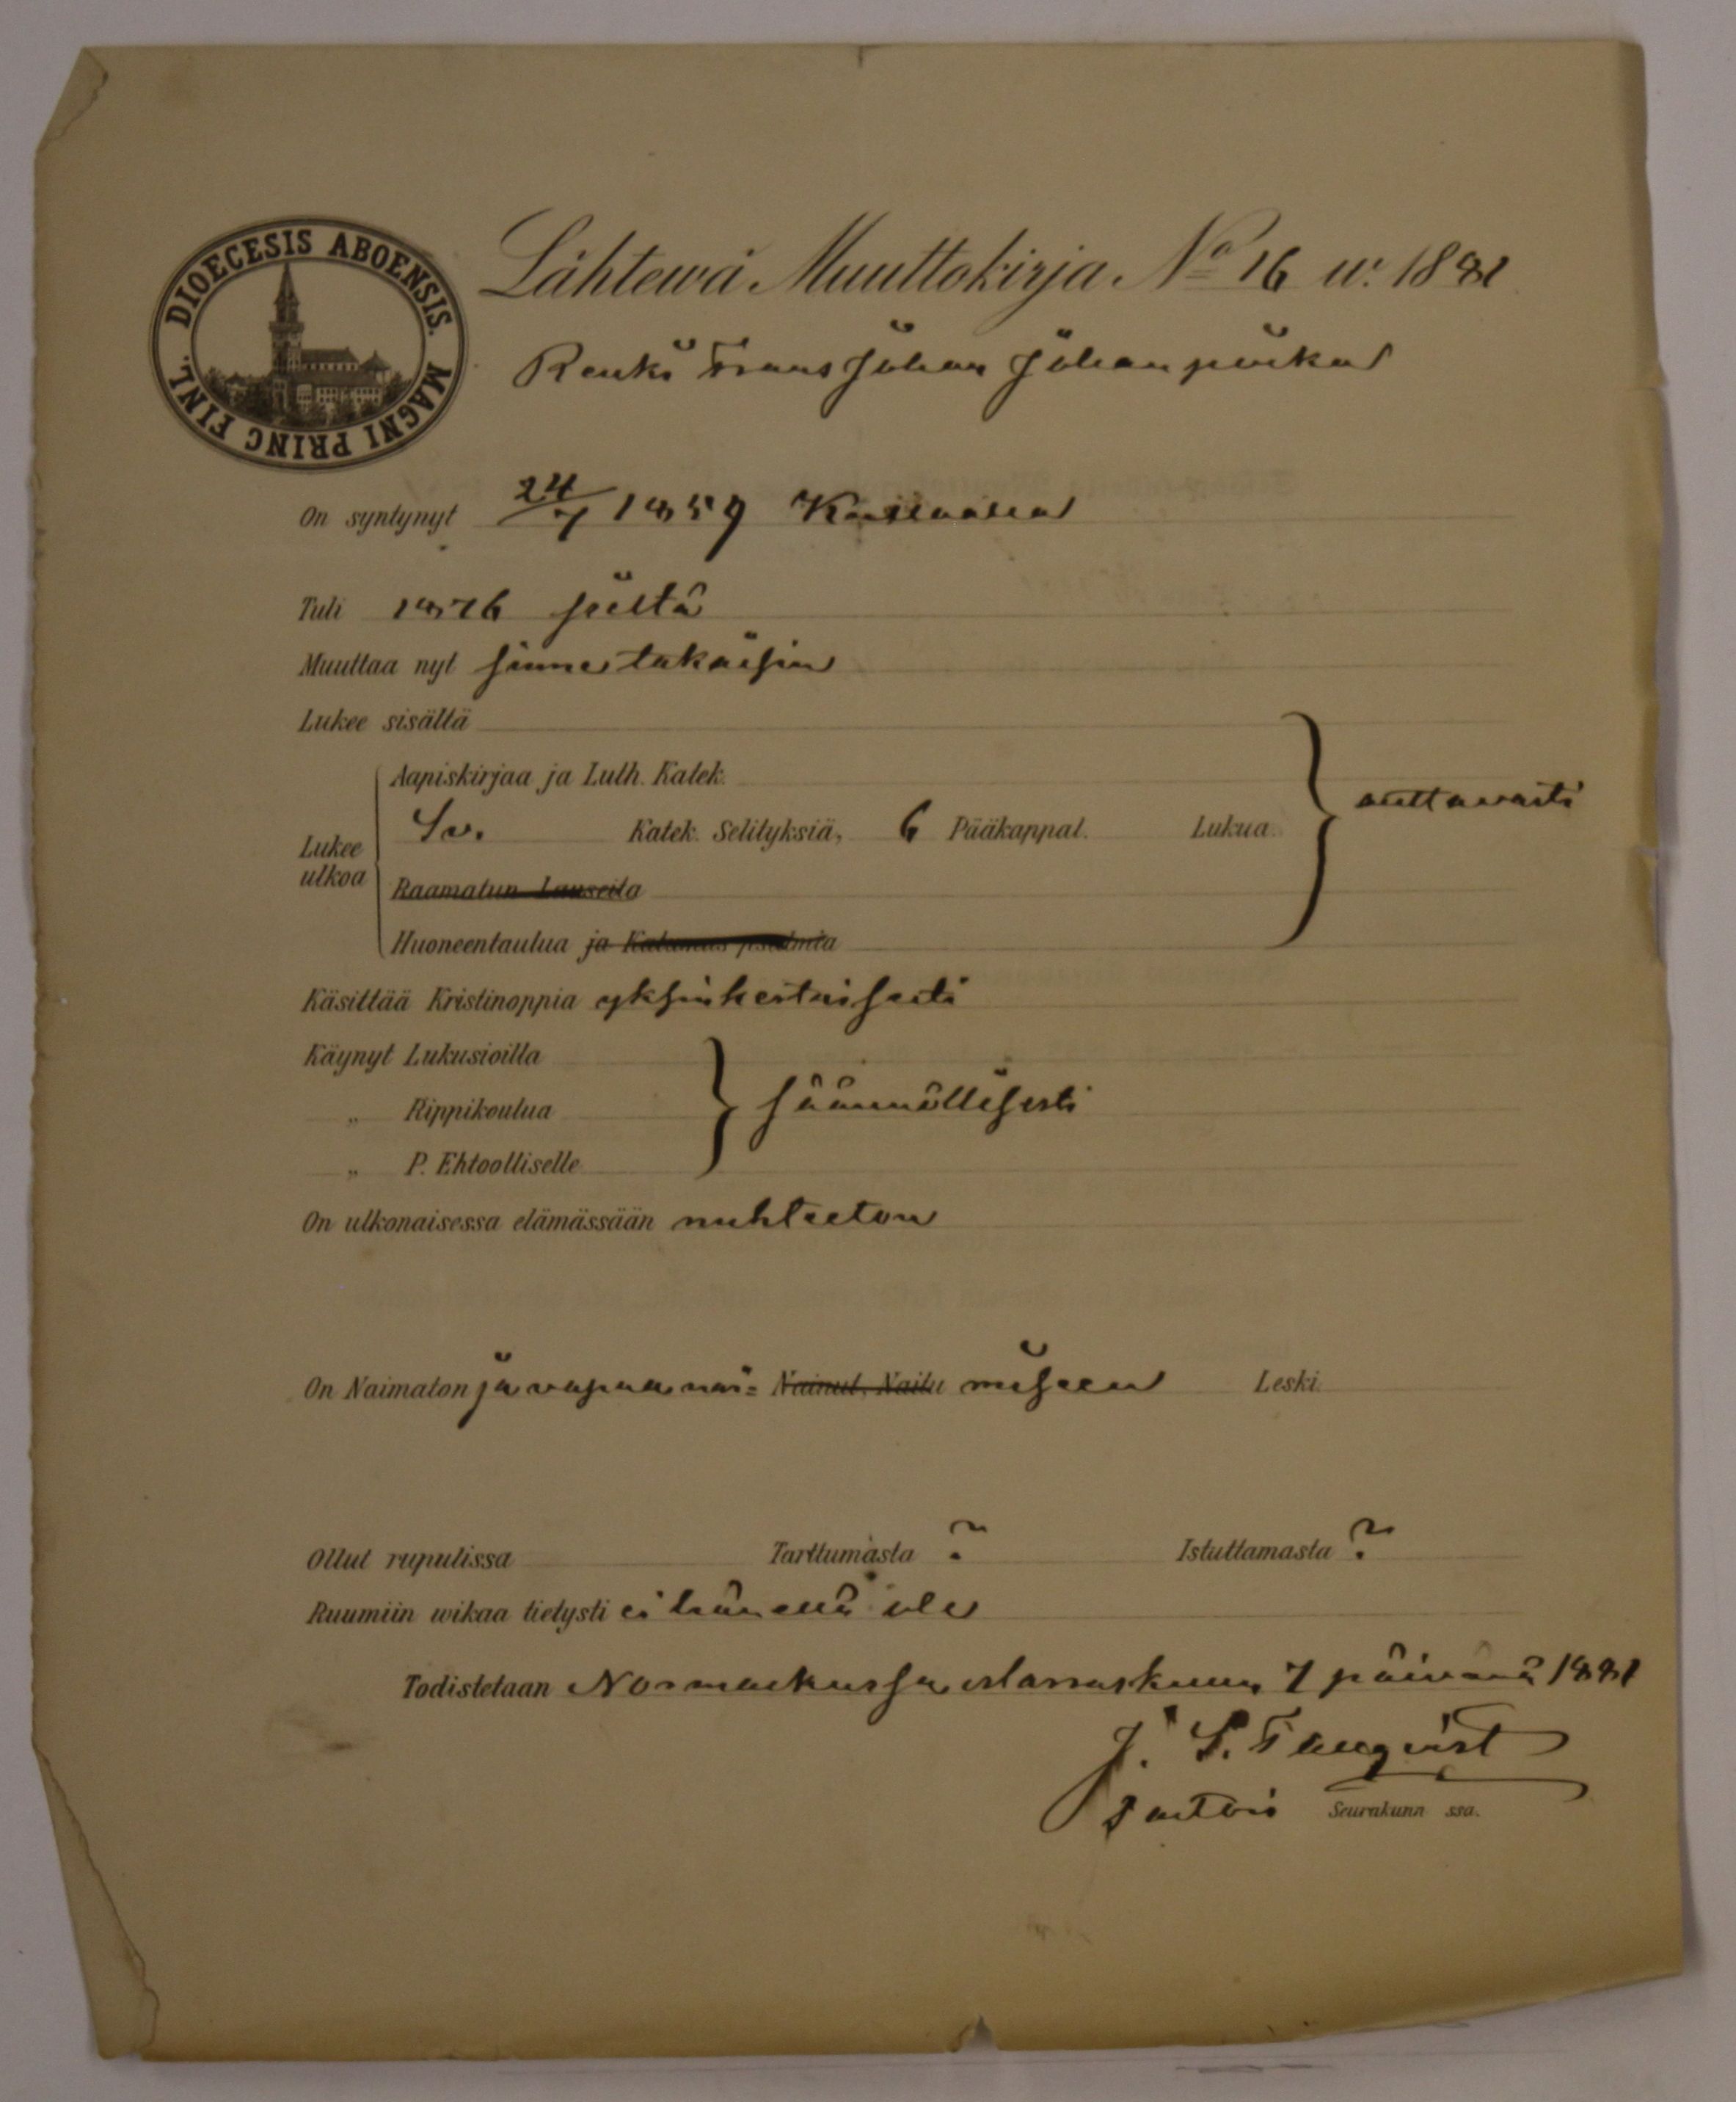 DIOECESIS ABOENSIS. MAGNI PRINC FINL.
Lähtewä Muuttokirja No 16 w. 1881
Renki Frans Johan Johanpoika
On syntynyt 24/7 1859
Tuli 1876 sieltä
Muuttaa nyt sinne takaisin
Lukee sisältä
Aapiskirjaa ja Luth. Katek.
Lukee ulkoa
Sv. Katek. Selityksiä, 6 Pääkappal. Lukua
auttavasti
Raamatun Lauseita
Huoneentaulua ja Katumus psalmia
Käsittää Kristinoppia yksinkertaisesti
Käynyt Lukusioilla
„ Rippikoulua
säännöllisesti
„ P. Ehtoolliselle
On ulkonaisessa elämässään nuhteeton
On Naimaton ja vapaa nai= Nainut, Naitu miseen Leski
Ollut rupulissa Tarttumasta ? Istuttamasta ?
Ruumiin wikaa tietysti ei hänellä ole
Todistetaan Normarkussa marraskuun 7 päivänä 1881
J. S.
Pastori Seurakunn ssa.